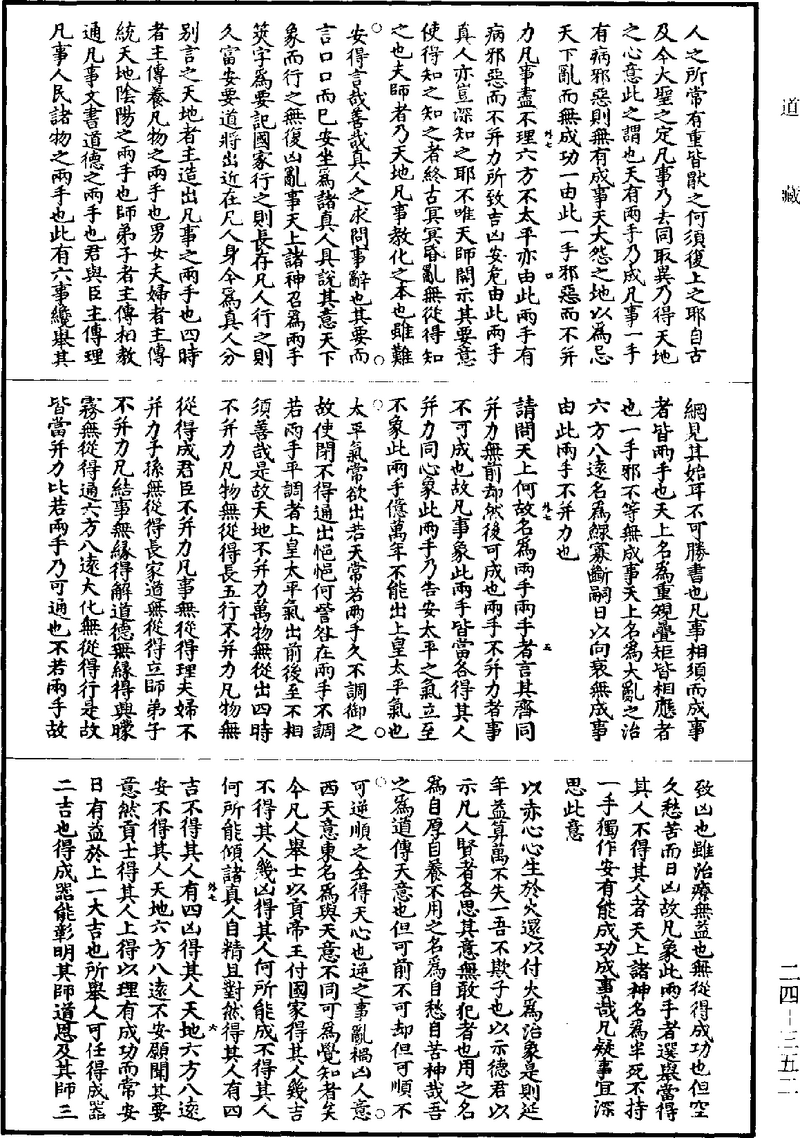 道藏
人之所常有重皆厭之何須復上之耶自古
及今大聖之定凡事乃去同取異乃得天地
之心意此之謂也天有兩手乃成凡事一手
有病邪惡則無有成事天大怨之地以為忌
天下亂而無成功一由此一手邪惡而不并
力凡事盡不理六方不太平亦由此兩手有
病邪惡而不并力所致吉凶安危由此兩手
真人亦豈深知之耶不唯天師開示其要意
使得知之知之者終古冥冥昏亂無從得知
之也夫師者乃天地凡事教化之本也雖難
安得言哉善哉真人之求問事辭也其要而
言口口而已安坐為諸真人具說其意天下
象而行之無復凶亂事天上諸神召為兩手
筴字為要記國家行之則長存凡人行之則
久富安要道將出近在凡人身今為真人分
別言之天地者主造出凡事之兩手也四時
者主傳養凡物之兩手也男女夫婦者主傳
統天地陰陽之兩手也師弟子者主傳相教
通凡事文書道德之兩手也君與臣主傳理
凡事人民諸物之兩手也此有六事纔舉其
綱見其始耳不可勝書也凡事相須而成事
者皆兩手也天上名為重規疊矩皆相應者
也一手邪不等無成事天上名為大亂之治
六方八遠名為鰥寡斷嗣日以向衰無成事
由此兩手不并力也
請問天上何故名為兩手兩手者言其齊同
并力無前却然後可成也兩手不并力者事
不可成也故凡事象此兩手皆當各得其人
并力同心象此兩手乃吉安太平之氣立至
不象此兩手億萬年不能出上皇太平氣也
太平氣常欲出若天常若兩手久不調御之
故使閉不得通出悒悒何訾咎在兩手不調
若兩手平調者上皇太平氣出前後至不相
須善哉是故天地不并力萬物無從出四時
不并力凡物無從得長五行不并力凡物無
從得成君臣不并力凡事無從得理夫婦不
并力子孫無從得長家道無從得立師弟子
不并力凡結事無緣得解道德無緣得興矇
霧無從得通六方八遠大化無從得行是故
皆當并力比若兩手乃可通也不若兩手故
致凶也雖治療無益也無從得成功也但空
久愁苦而日凶故凡象此兩手者選舉當得
其人不得其人者天上諸神名為半死不持
一手獨作安有能成功成事哉凡疑事宜深
思此意
以赤心心生於火還以付火為治象是則延
年益算萬不失一吾不欺子也以示德君以
示凡人賢者各思其意無敢犯者也用之名
為自厚自養不用之名為自愁自苦神哉吾
之為道傳天意也但可前不可却但可順不
可逆順之全得天心也逆之事亂禍凶人意
西天意東名為與天意不同可為覺知者矣
今凡人舉士以貢帝王付國家得其人幾吉
不得其人幾凶得其人何所能成不得其人
何所能傾諸真人自精且對然得其人有四
吉不得其人有四凶得其人天地六方八遠
安不得其人天地六方八遠不安願聞其要
意然貢士得其人上得以理有成功而常安
日有益於上一大吉也所舉人可任得成器
二吉也得成器能彰明其師道恩及其師三
二四－三五二